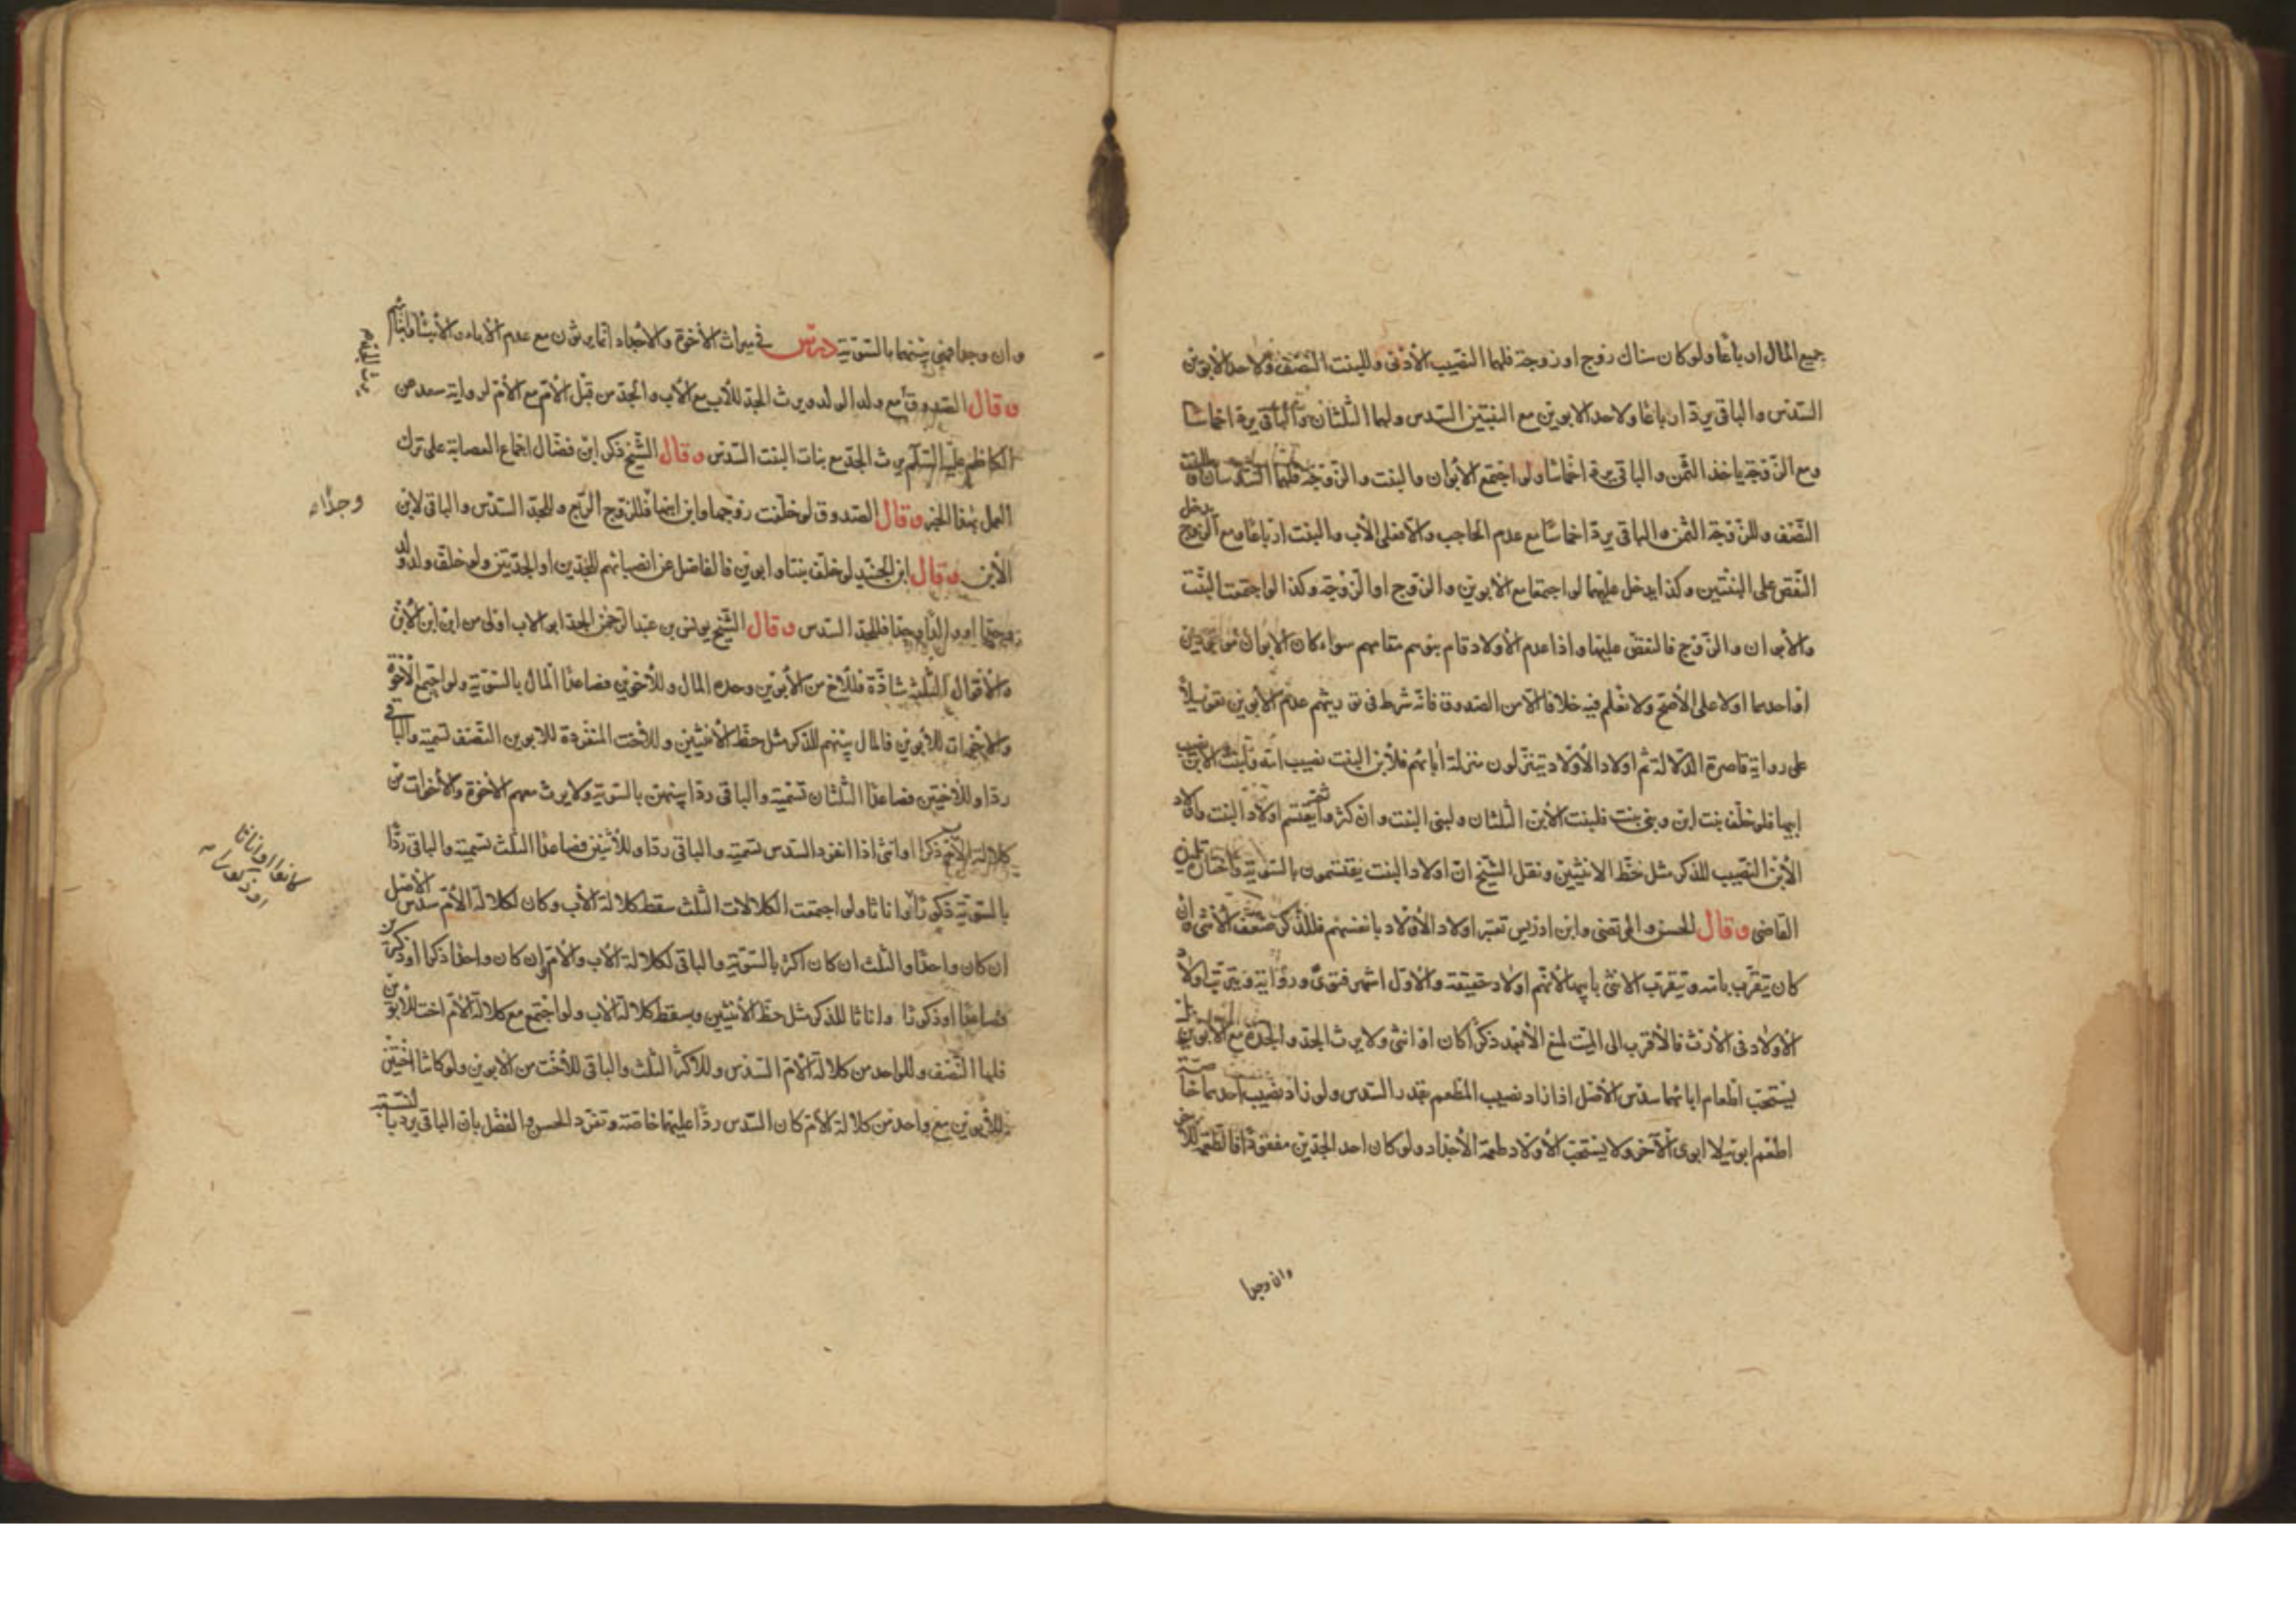 جميع المال ارباعا ولو كان هناك زوج او زوجة فلهما النصيب الأدنى وللبنت النصف ولاحد الأبوين
السدس والباقي يرد ارباعا ولاحد الابوين مع البنتين السدس ولهما الثلثان والباقي يرد اخماسا
ومع الزوجة ياخذ الثمن والباقي يرد اخماسا ولو اجتمع الأبوان والبنت والزوجة فلهما السدسان وللبنت
النصف وللزوجة الثمن والباقي يرد اخماسا مع عدم الحاجب والا فعلى الأب والبنت ارباعا ومع الزوج يدخل
النقص على البنتين وكذا يدخل عليهما لو اجتمعا مع الابوين والزوج او الزوجة وكذا لو اجتمعت البنت
والأبوان والزوج فالنقص عليها واذا عدم الأولاد قام بنوهم مقامهم سواء كان الابوان موجودين
او احدهما اولا على الأصح ولا نعلم فيه خلافا الا من الصدوق فانه شرط في توريثهم عدم الأبوين تعويلا
على رواية قاصرة الدلالة ثم اولاد الأولاد يتنزلون منزلة ابائهم فلابن البنت نصيب امه ولبنت الابن نصيب
ابيها فلو خلف بنت ابن وبني بنت فلبنت الأبن الثلثان ولبني البنت وان كثروا ثم يقتسم اولاد البنت واولاد
الأبن النصيب للذكر مثل حظ الانثيين ونقل الشيخ ان اولاد البنت يقتسمون بالسوية واختاره تلميذه
القاضي وقال الحسن والمرتضى وابن ادريس تعتبر اولاد الأولاد بانفسهم فللذكر ضعف الأنثى وان
كان يتقرب بامه وتتقرب الانثى بابيها لأنهم اولاد حقيقة والاول اشهر فتوى ورواية ويترتب اولاد
الأولاد في الأرث فالأقرب الى الميت يمنع الأبعد ذكرا كان او انثى ولا يرث الجد والجدة مع الأبوين بل
يستحب اطعام ابائهما سدس الأصل اذا زاد نصيب المطعم بقدر السدس ولو زاد نصيب احدهما خاصة
اطعم ابويه لا ابوي الآخر ولا يستحب للأولاد طعمة الأجداد ولو كان احد الجدين مفقودا فالطعمة للآخر
وان وجدا
وان وجدا فهي بينهما بالسوية درس في ميراث الأخوة والأجداد انما يرثون مع عدم الأباء والأبناء وابنائهم
وقال الصدوق مع ولد الولد ويرث الجد للأب مع الأب والجد من قبل الأم مع الأم لرواية سعد عن
يرث الجد مع
الكاظم عليه السلم يرث الجد مع بنات البنت السدس وقال الشيخ ذكر ابن فضال اجماع العصابة على ترك
العمل بهذا الخبر وقال الصدوق لو خلفت زوجها وابن ابنها فللزوج الربع وللجد السدس والباقي لابن
وجدا
الأبن وقال ابن الجنيد لو خلف بنتا وابوين فالفاضل عن انصبائهم للجدين او الجدتين ولو خلف ولد ولد
وجدا او والدا وجدا فللجد السدس وقال الشيخ يونس بن عبد الرحمن الجد ابو الاب اولى من ابن ابن الأبن
والأقوال الثلثة شاذة فللأخ من الأبوين وحده المال وللأخوين فصاعدا المال بالسوية ولو اجتمع الأخوة
والاخوات للأبوين فالمال بينهم للذكر مثل حظ الأنثيين وللأخت المنفردة للابوين النصف تسمية والباقي
ردا وللأختين فصاعدا الثلثان تسمية والباقي ردا بينهن بالسوية ولا يرث معهم الأخوة والأخوات من
كلالة الأم ذكرا او انثى اذا انفرد السدس تسمية والباقي ردا وللأثنين فصاعدا الثلث تسمية والباقي ردا
كانوا او اناثا
او ذكورا
بالسوية ذكورا او اناثا ولو اجتمعت الكلالات الثلث سقط كلالة الأب وكان لكلالة الأم سدس الأصل
ان كان واحدا والثلث ان كان اكثر بالسوية والباقي لكلالة الأب والأم ان كان واحدا ذكرا او ذكرين
فصاعدا او ذكورا واناثا للذكر مثل حظ الأنثيين ويسقط كلالة الأب ولو اجتمع مع كلالة الأم اخت للأبوين
فلها النصف وللواحد من كلالة الأم السدس وللأكثر الثلث والباقي للأخت من الأبوين ولو كانتا اختين
للأبوين مع واحد من كلالة الأم كان السدس ردا عليهما خاصة وتفرد الحسن والفضل بان الباقي يرد